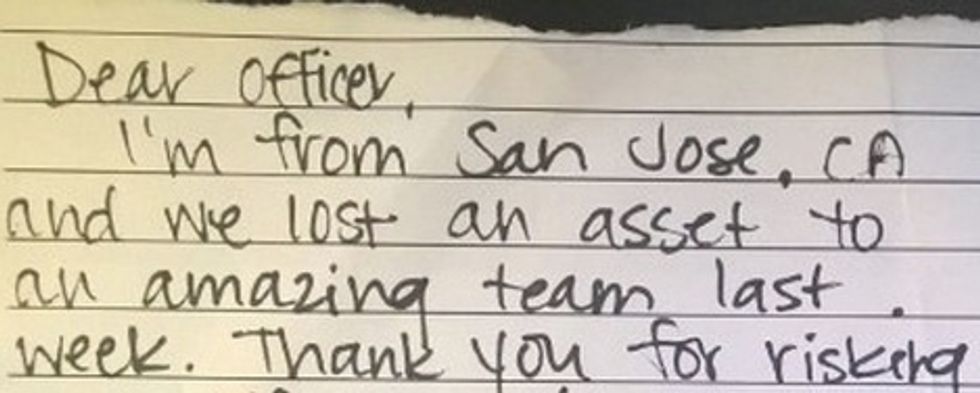 Dear Officer,
I'm from San Jose, CA
and we lost an asset to
an amazing team last .
week. Thank you for risking